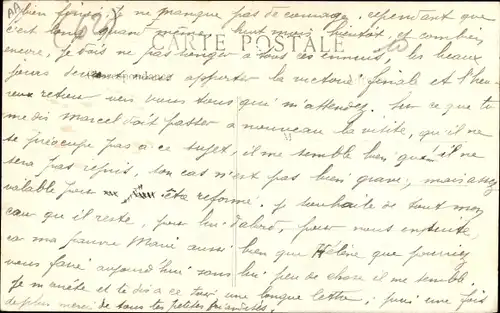 bien fini. Je ne manque pas de courage, cependant que
c'est long quand même, huit mois bientôt, et combien
encore, je dois ne pas songer à tous ces ennuis, les beaux
CARTE POSTALE
jours devant nous apporter la victoire final et l'heu
reux retour vers vous tous qui m'attendez. Sur ce que tu
me dis Marcel doit passer a nouveau la visite, qu'il ne
se préocupe pas a ce sujet, il me semble bien qu'il ne
sera pas repris, son cas n'est pas bien grave, mais assez
valable pour être réformé. Je souhaite de tout mon
cœur que il reste, pour lui d'abord, pour vous ensuite,
car ma pauvre Marie aussi bien que Hélène que pourriez
vous faire aujourd'hui sans lui peu de chose il me semble.
Je m'arrête et te dis a ce soir une longue lettre, puis une fois
de plus merci de tous tes petites friandises.